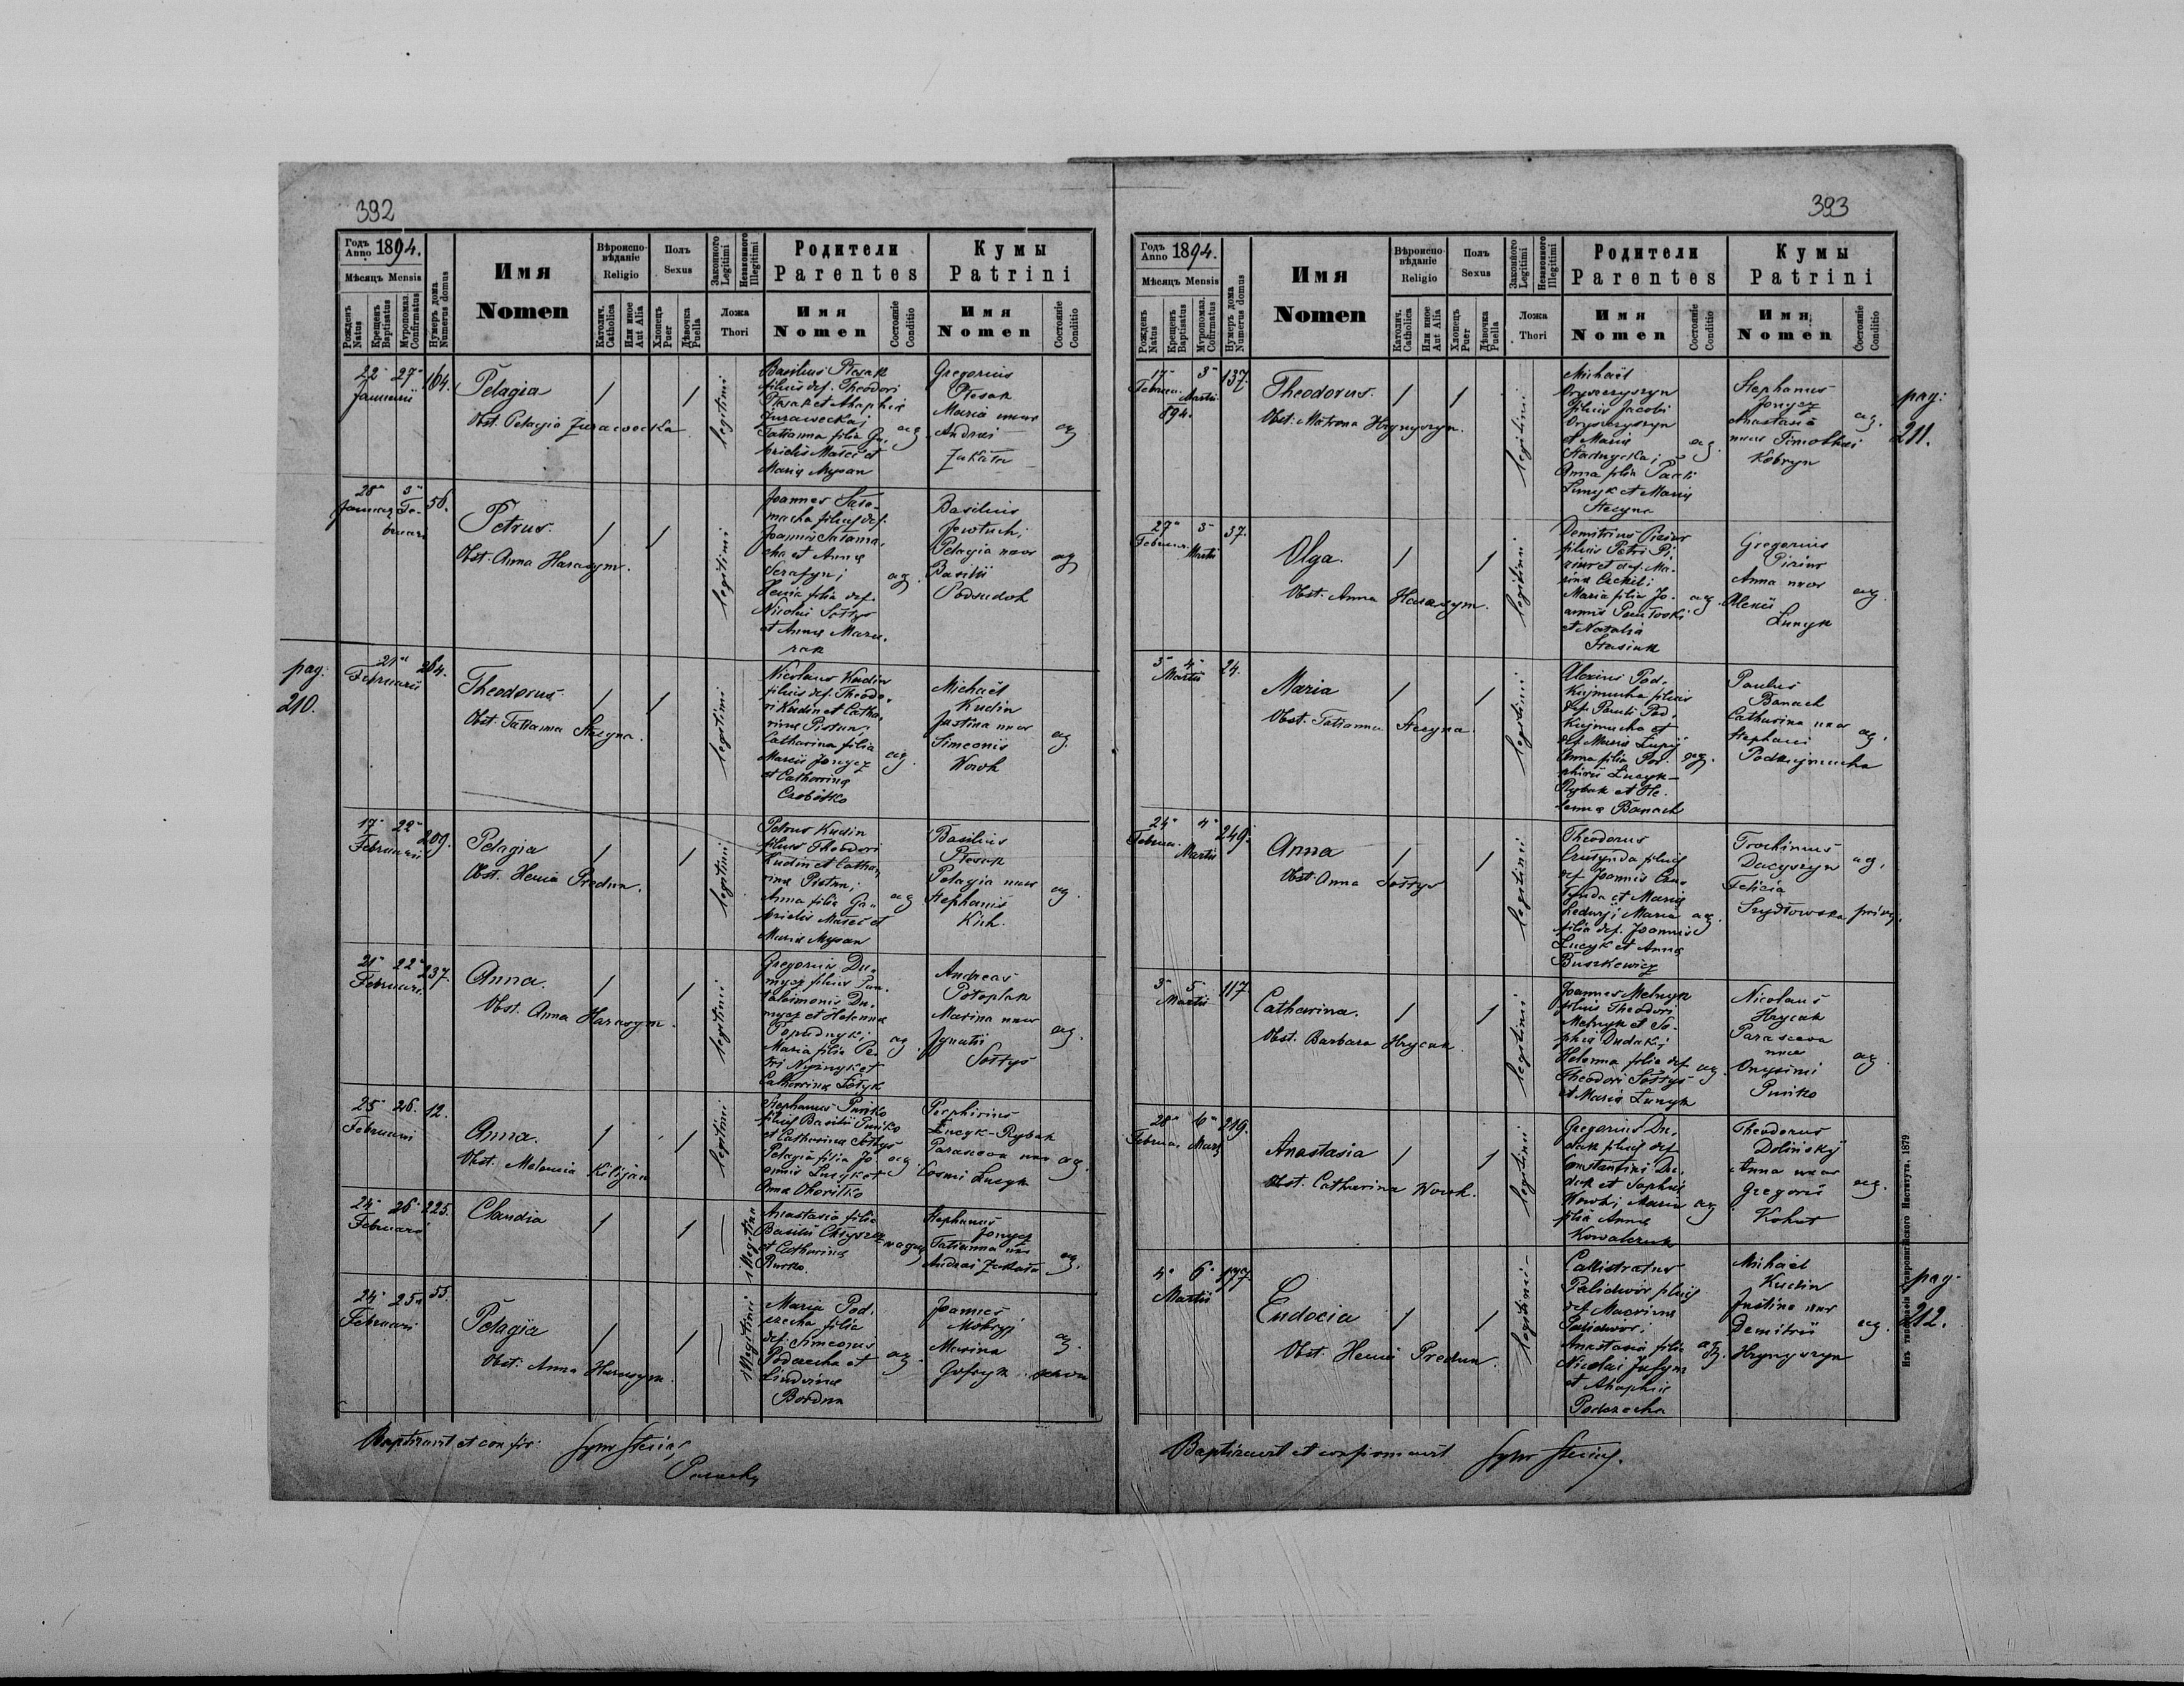 392
Годъ Anno 1894.
Мѣсяцъ Mensis
Рожденъ Natus
Крещенъ Baptisatus
Мѵропомаз. Confirmatus
Нумеръ дома Numerus domus
Имя
Nomen
Вѣроиспо-
вѣданіе
Religio
Католич. Catholica
Или иное Aut Alia
Полъ
Sexus
Хлопецъ Puer
Дѣвочка Puella
Законного Legitimi
Незаконного Illegitimi
Ложа
Thori
Родители
Parentes
Имя
Nomen
Состояніе Conditio
Кумы
Patrini
Имя
Nomen
Состояніе Conditio
22 27 164.
Januarii
Pelagia
Obst. Pelagia Zurawecka
legitimi
Basilius Ptesak
filius def. Theodori
Ptasak et Ahaphia
Zurawecka;
Tatianna filia Ga-
brielis Matei et
Maria Mysan
ag
Gregorius
Ptesak
Maria uxor
Andrei
Zukata
ag
28 3 56.
Januar. Fe-
bruari
Petrus.
Obst. Anna Harasym.
legitimi
Joannes Sata-
macha filius def.
Joannis Satama-
cha et Anna
Serafyn;
Xenia filia def.
Nicolai Sołtys
et Anna Mazu-
rak
ag.
Basilius
Jewtuch;
Pelagia uxor
Basilii
Podsudoh
ag
pag:
210.
21 264.
Februarii
Theodorus
Obst. Tatianna Stecyna.
legitimi
Nicolaus Kudin
filius def. Theodo-
ri Kudin et Catha-
rina Pistun;
Catharina filia
Marci Jonycz
et Catharina
Czobitko
ag.
Michael
Kudin
Justina uxor
Simeonis
Wowk
ag.
17 22 209.
Februari
Pelagia
Obst. Xenia Predun.
legitimi
Petrus Kudin
filius Theodori
Kudin et Catha-
rina Pistun;
Anna filia Ga-
brielis Matei et
Maria Mysan
ag
Basilius
Ptesak
Pelagia uxor
Stephanis
Kich.
ag.
21 22 237.
Februari.
Anna.
Obst. Anna Harasym.
legitimi
Gregorius Du-
mycz filius Pan-
taleimonis Du-
mycz et Helenna
Popadnyk;
Maria filia Pe-
tri Nyżnyk et
Catharina Łotyk
ag
Andreas
Potoplak
Marina uxor
Ignatii
Sołtys
ag.
25 26. 12.
Februari
Anna.
Obst. Melania Kilijan
legitimi
Stephanus Puńko
filius Basilii Puńko
et Catharina Sołtys
Pelagia filia Jo-
annis Łucyk et
Anna Ohoriłko
ag
Porphirius
Łucyk-Rybak
Parasceva uxor
Cosmi Łucyk
ag.
24 26 225.
Februari
Claudia
illegitimi
Anastasia filia
Basilii
et Catharina
Rurko.
Stephanus
Jonycz
Tatianna uxor
Andrei Zukata
ag.
24 25 55.
Februari
Pelagia
Obst. Anna Harasym.
illegitimi
Maria Pod-
czecha filia
def. Simeonis
Podczecha et
Bordun
ag
Joannes
Mokryj
Marina
ag.
Baptisavit et confir:
393
Годъ Anno 1894.
Мѣсяцъ Mensis
Рожденъ Natus
Крещенъ Baptisatus
Мѵропомаз. Confirmatus
Нумеръ дома Numerus domus
Имя
Nomen
Вѣроиспо-
вѣданіе
Religio
Католич. Catholica
Или иное Aut Alia
Полъ
Sexus
Хлопецъ Puer
Дѣвочка Puella
Законного Legitimi
Незаконного Illegitimi
Ложа
Thori
Родители
Parentes
Имя
Nomen
Состояніе Conditio
Кумы
Patrini
Имя
Nomen
Состояніе Conditio
17 3 137.
Februari Martii
894.
Theodorus.
Obst. Matrona Hrynyszyn.
legitimi
Michael
Oryszczyszyn
filius Jacobi
Oryszczyszyn
et Maria
Stadnycka;
Anna filia Pauli
Łunyk et Maria
Stecyna
ag.
Stephanus
Jonycz
Anastasia
uxor Timothei
Kobryn
ag.
pag:
211.
27 3 37.
Februar. Martii
Olga.
Obst. Anna Harasym.
legitimi
Demitrius Piziur
filius Petri Pi-
ziur et def. Ma-
rina
Maria filia Jo-
annis Pawłowski
et Natalia
Stasiuk
ag.
Gregorius
Piziur
Anna uxor
Alexii
Łunyk
ag.
3 4 24.
Martii
Maria
Obst. Tatianna Stecyna
legitimi
Alexius Pod-
kujmucha filius
def. Pauli Pod-
kujmucha et
def. Maria Łupij
Anna filia Por-
phirii Łucyk-
Rybak et He-
lenna Banach
ag.
Paulus
Banach
Catharina uxor
Stephani
Podkujmucha
ag.
24 4 249.
Februar. Martii
Anna
Obst. Anna Sołtys
legitimi
Theodorus
filius
def. Joannis
et Maria
Maria
filia def. Joannis
Łucyk et Anna
Buszkewicz
ag.
Trochimus
Dacyszyn
Felicia
Szydłowska
ag.
priv.
3 5 117
Martii
Catharina.
Obst. Barbara Hrycak.
legitimi
Joannes Melnyk
filius Theodori
Melnyk et So-
phia Dudak;
Helenna filia def.
Theodori Sołtys
et Maria Łunyk
ag.
Nicolaus
Hrycak
Parasceva
uxor
Onysimi
Puńko
ag.
28 6 219.
Februa. Marti
Anastasia
Obst. Catharina Wowk.
legitimi
Gregorius Du-
dak filius def.
Constantini Du-
dak et Sophia
Wowk; Maria
filia Anna
Kowalczuk
ag
Theodorus
Doliński
Anna uxor
Gregorii
Kohut
ag.
4 6 177
Martii
Eudocia
Obst. Xenia Predun.
legitimi
Callistratus
Palidwor filius
def. Macrina
Palidwor;
Anastasia filia
Nicolai
et Ahaphia
Podczecha
ag.
Michael
Kudin
Justina uxor
Demitrii
Hrynyszyn
ag.
pag.
212.
Baptisavit et confirmavit
Изъ типографіи Ставропигійского Института, 1879